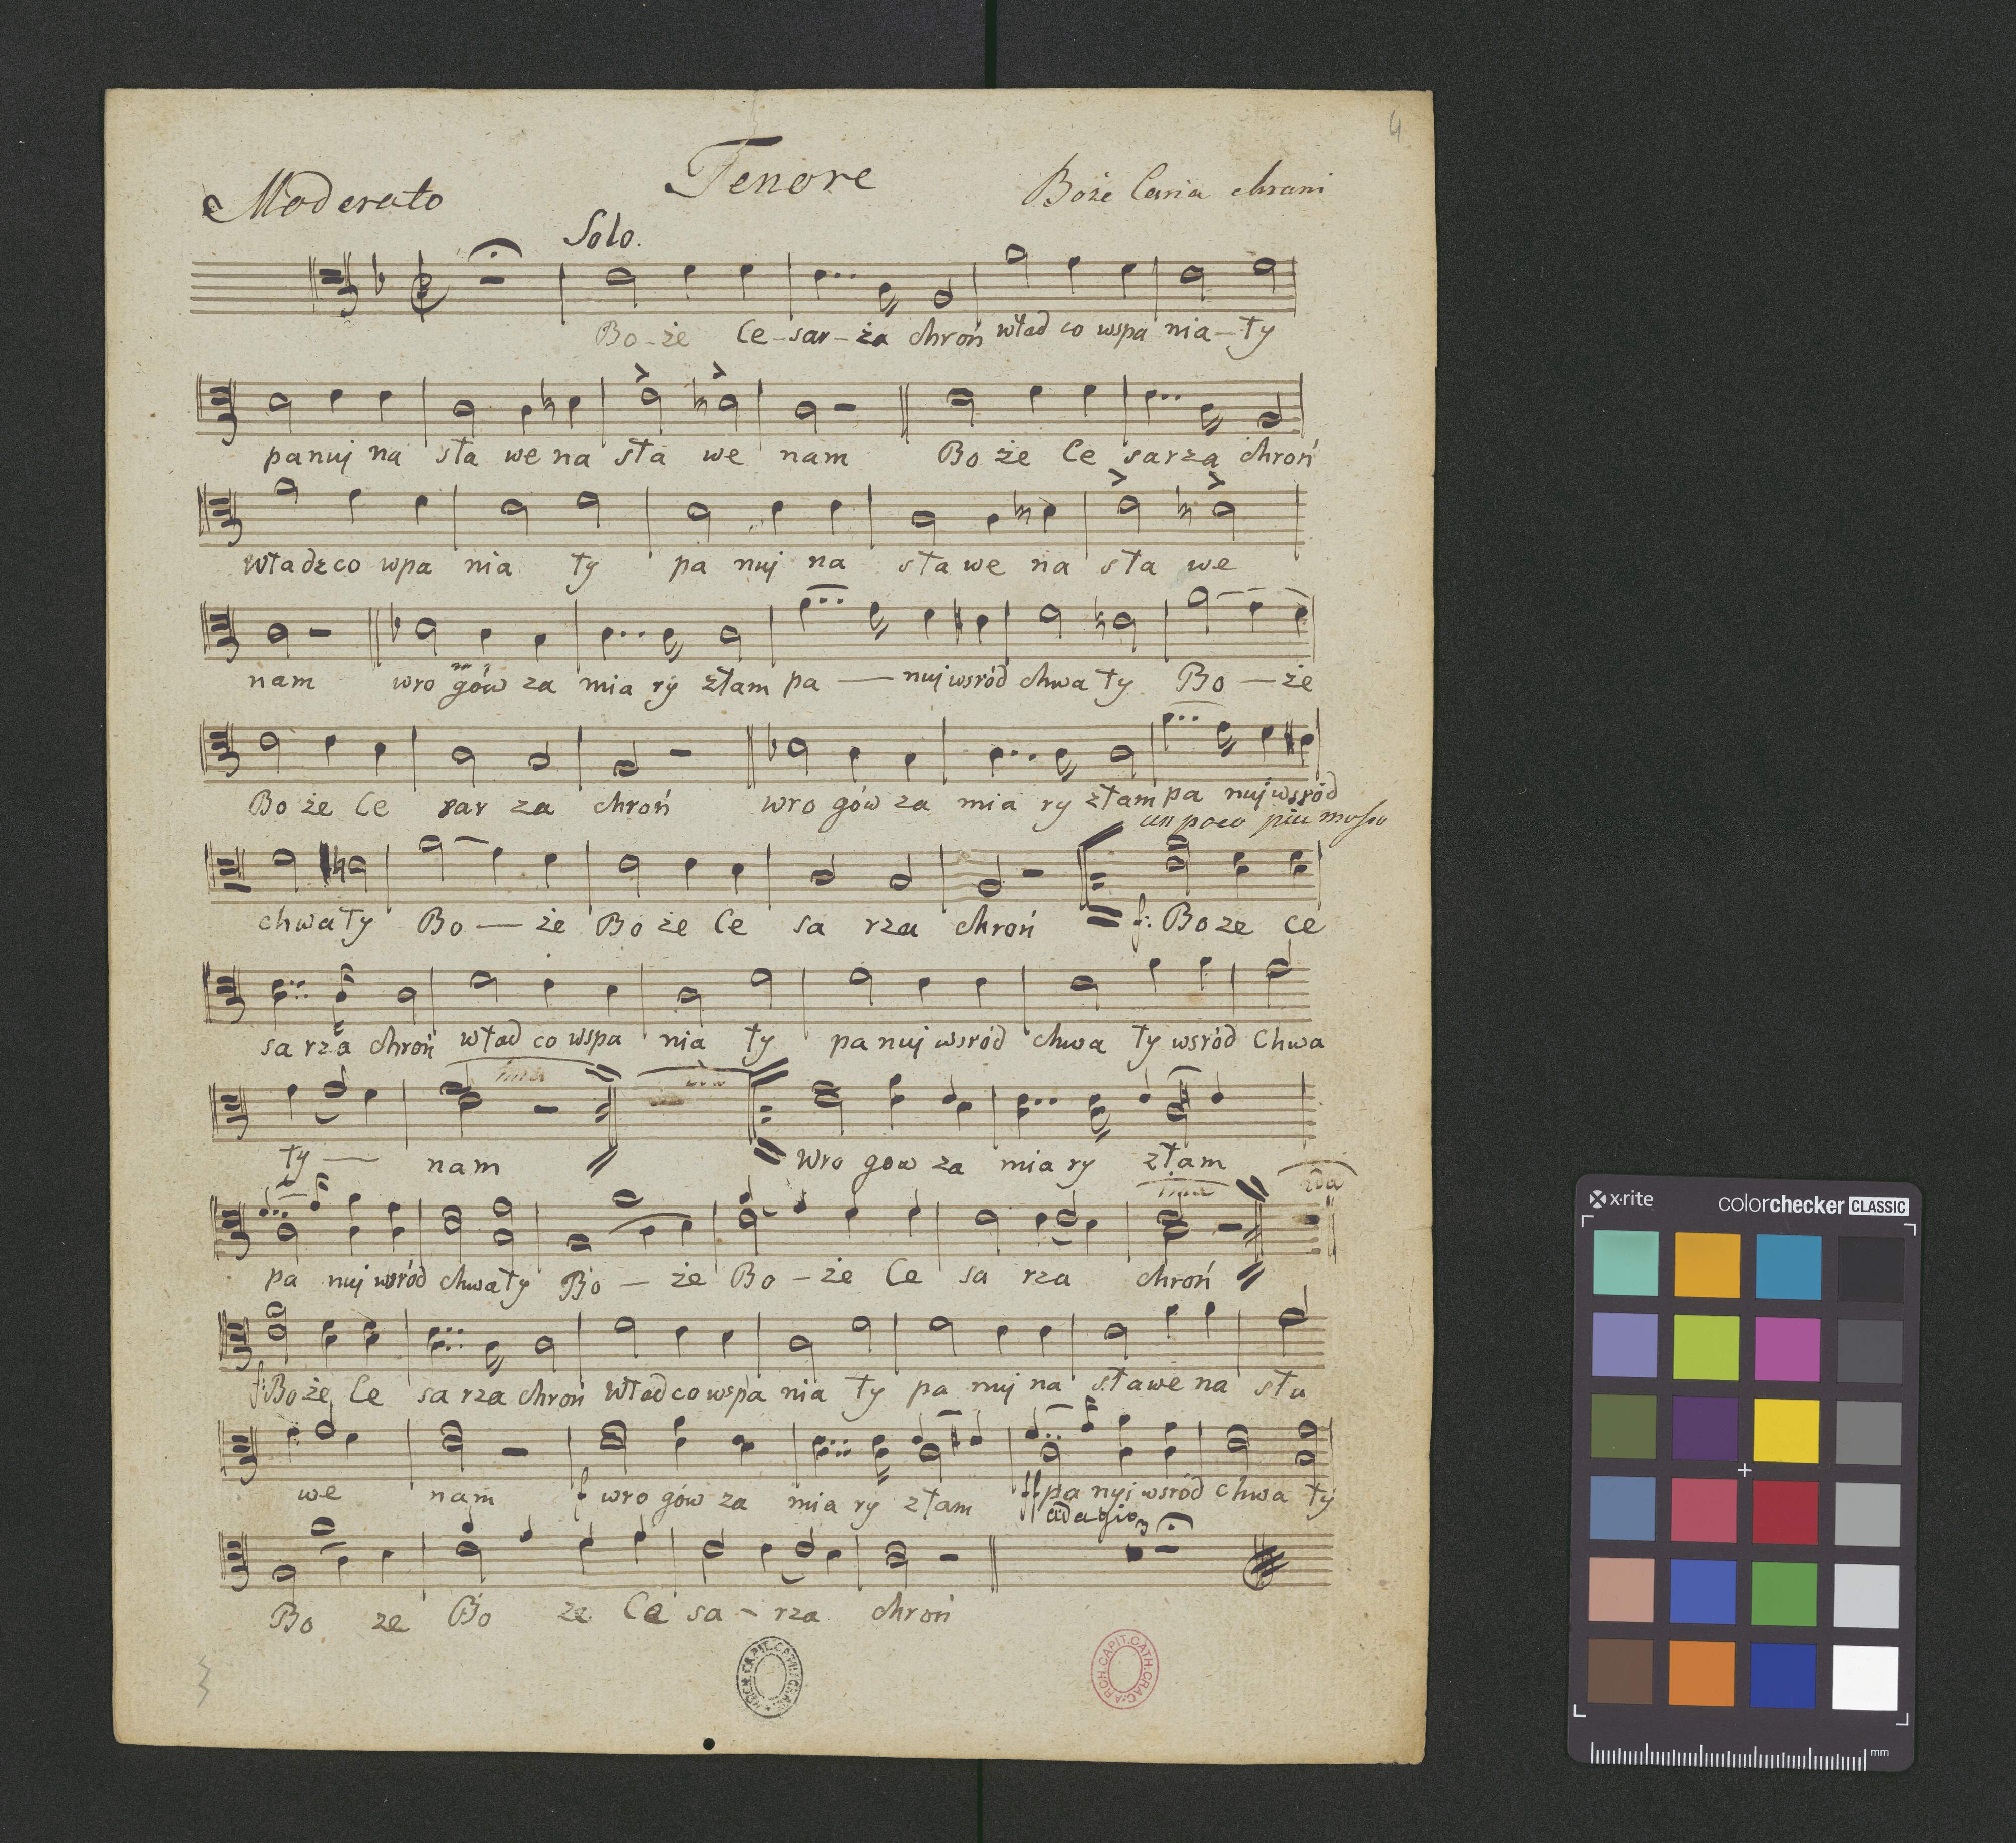 4
Tenore
Moderato
Boże Caria chrani
Solo.
Bo-że Ce-sar-ża chroń wład co wspa nia-ły
panuj na sła we na sła we nam Bo że Ce sarza chroń
Władzco wpa nia ły pa nuj na sła we na sła we
nam wro gów za mia rÿ złam pa — nuj wsród chwa ły Bo — że
Bo że Ce sar za chroń wro gów za mia ry złam pa nuj wsród
un poco piu mosso
chwa ły Bo — że Bo że Ce sa rza chroń f: Bo ze ce
sa rza chroń wład co wspa nia ły pa nuj wsród chwa ły wsród Chwa
ima 2da
ły — nam Wro gow za mia ry złam
ima 2da
pa nuj wsród chwa ły Bo — że Bo — że Ce sa rza chroń
f: Bo że Ce sa rza chroń Wład co wspa nia ły pa nuj na sławe na sła
we nam f wro gów za mia ry złam ff pa nyj wsród chwa ły
adagio
Bo ze Bo ze Ce sa - rza chroń
ARCH.CAPIT.CATH.CRAC.
ARCH.CAPIT.CATH.CRAC.
x-rite
colorchecker CLASSIC
mm